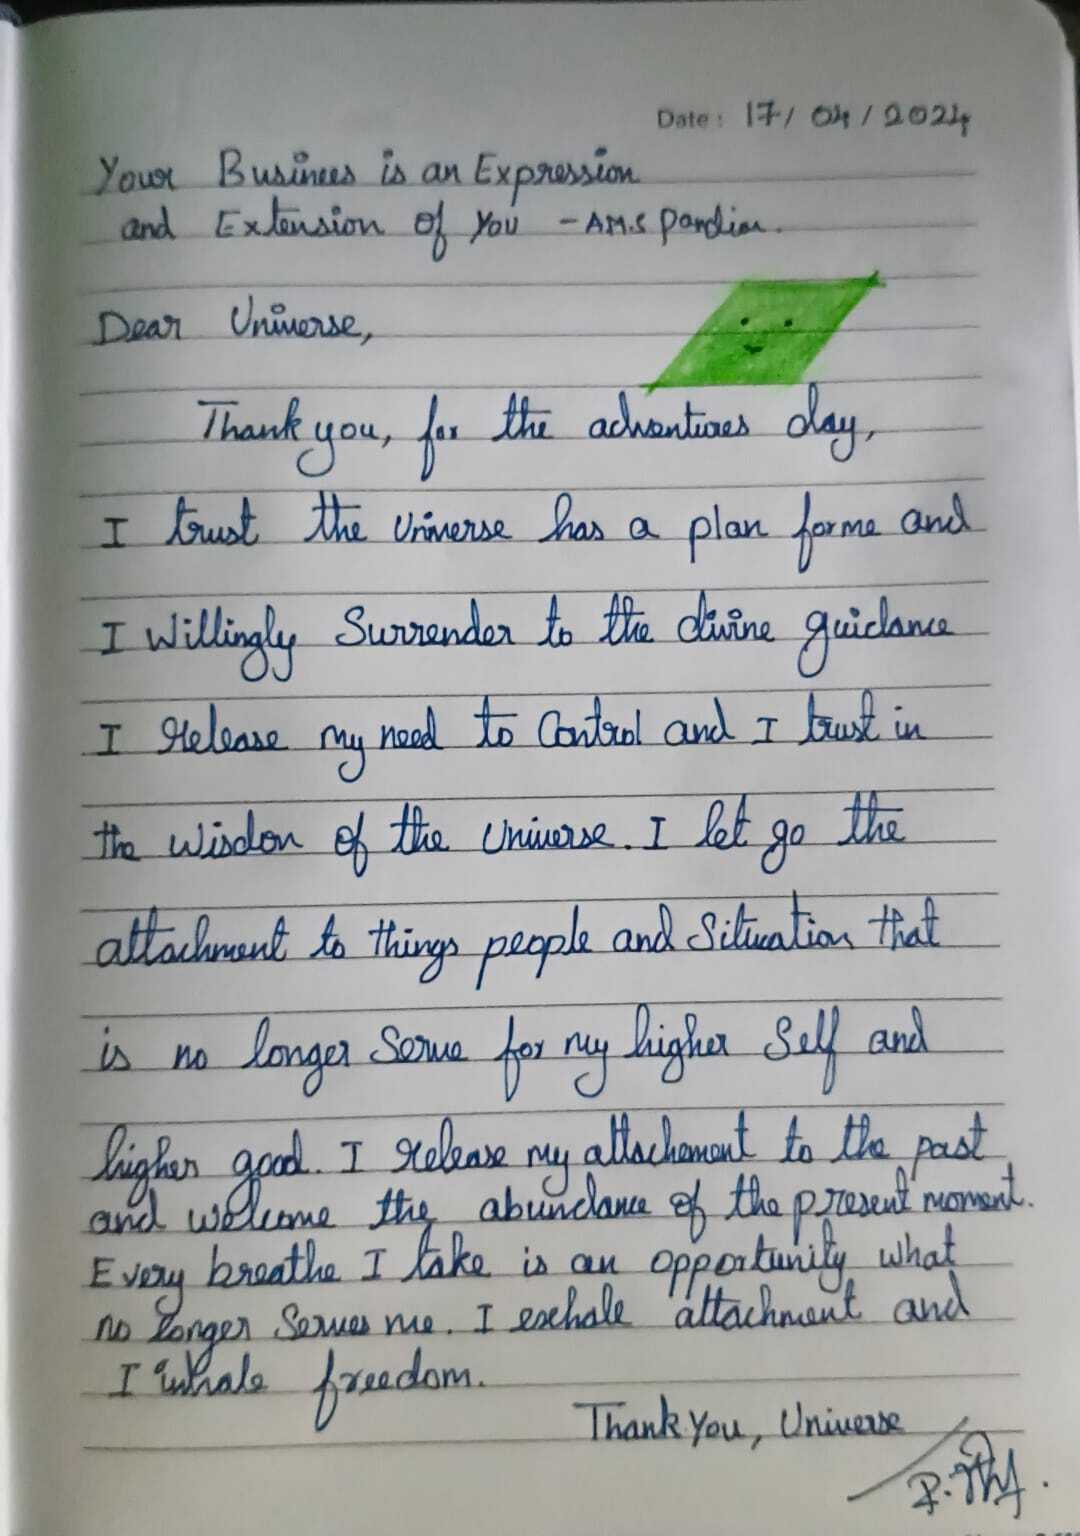 Date: 17/04/2024
Your Business is an Expression
and Extension of You - AM.S Pandian.
Dear Universe,
Thank you, for the adventures day,
I trust the Universe has a plan for me and
I Willingly Surrender to the divine guidance
I release my need to Control and I trust in
the wisdon of the Universe. I let go the
attachment to things people and Situation that
is no longer Serve for my higher Self and
higher good. I release my attachement to the past
and welcome the abundance of the present moment.
Every breathe I take is an opportunity what
no longer Serves me. I exhale attachment and
I inhale freedom.
Thank You, Universe